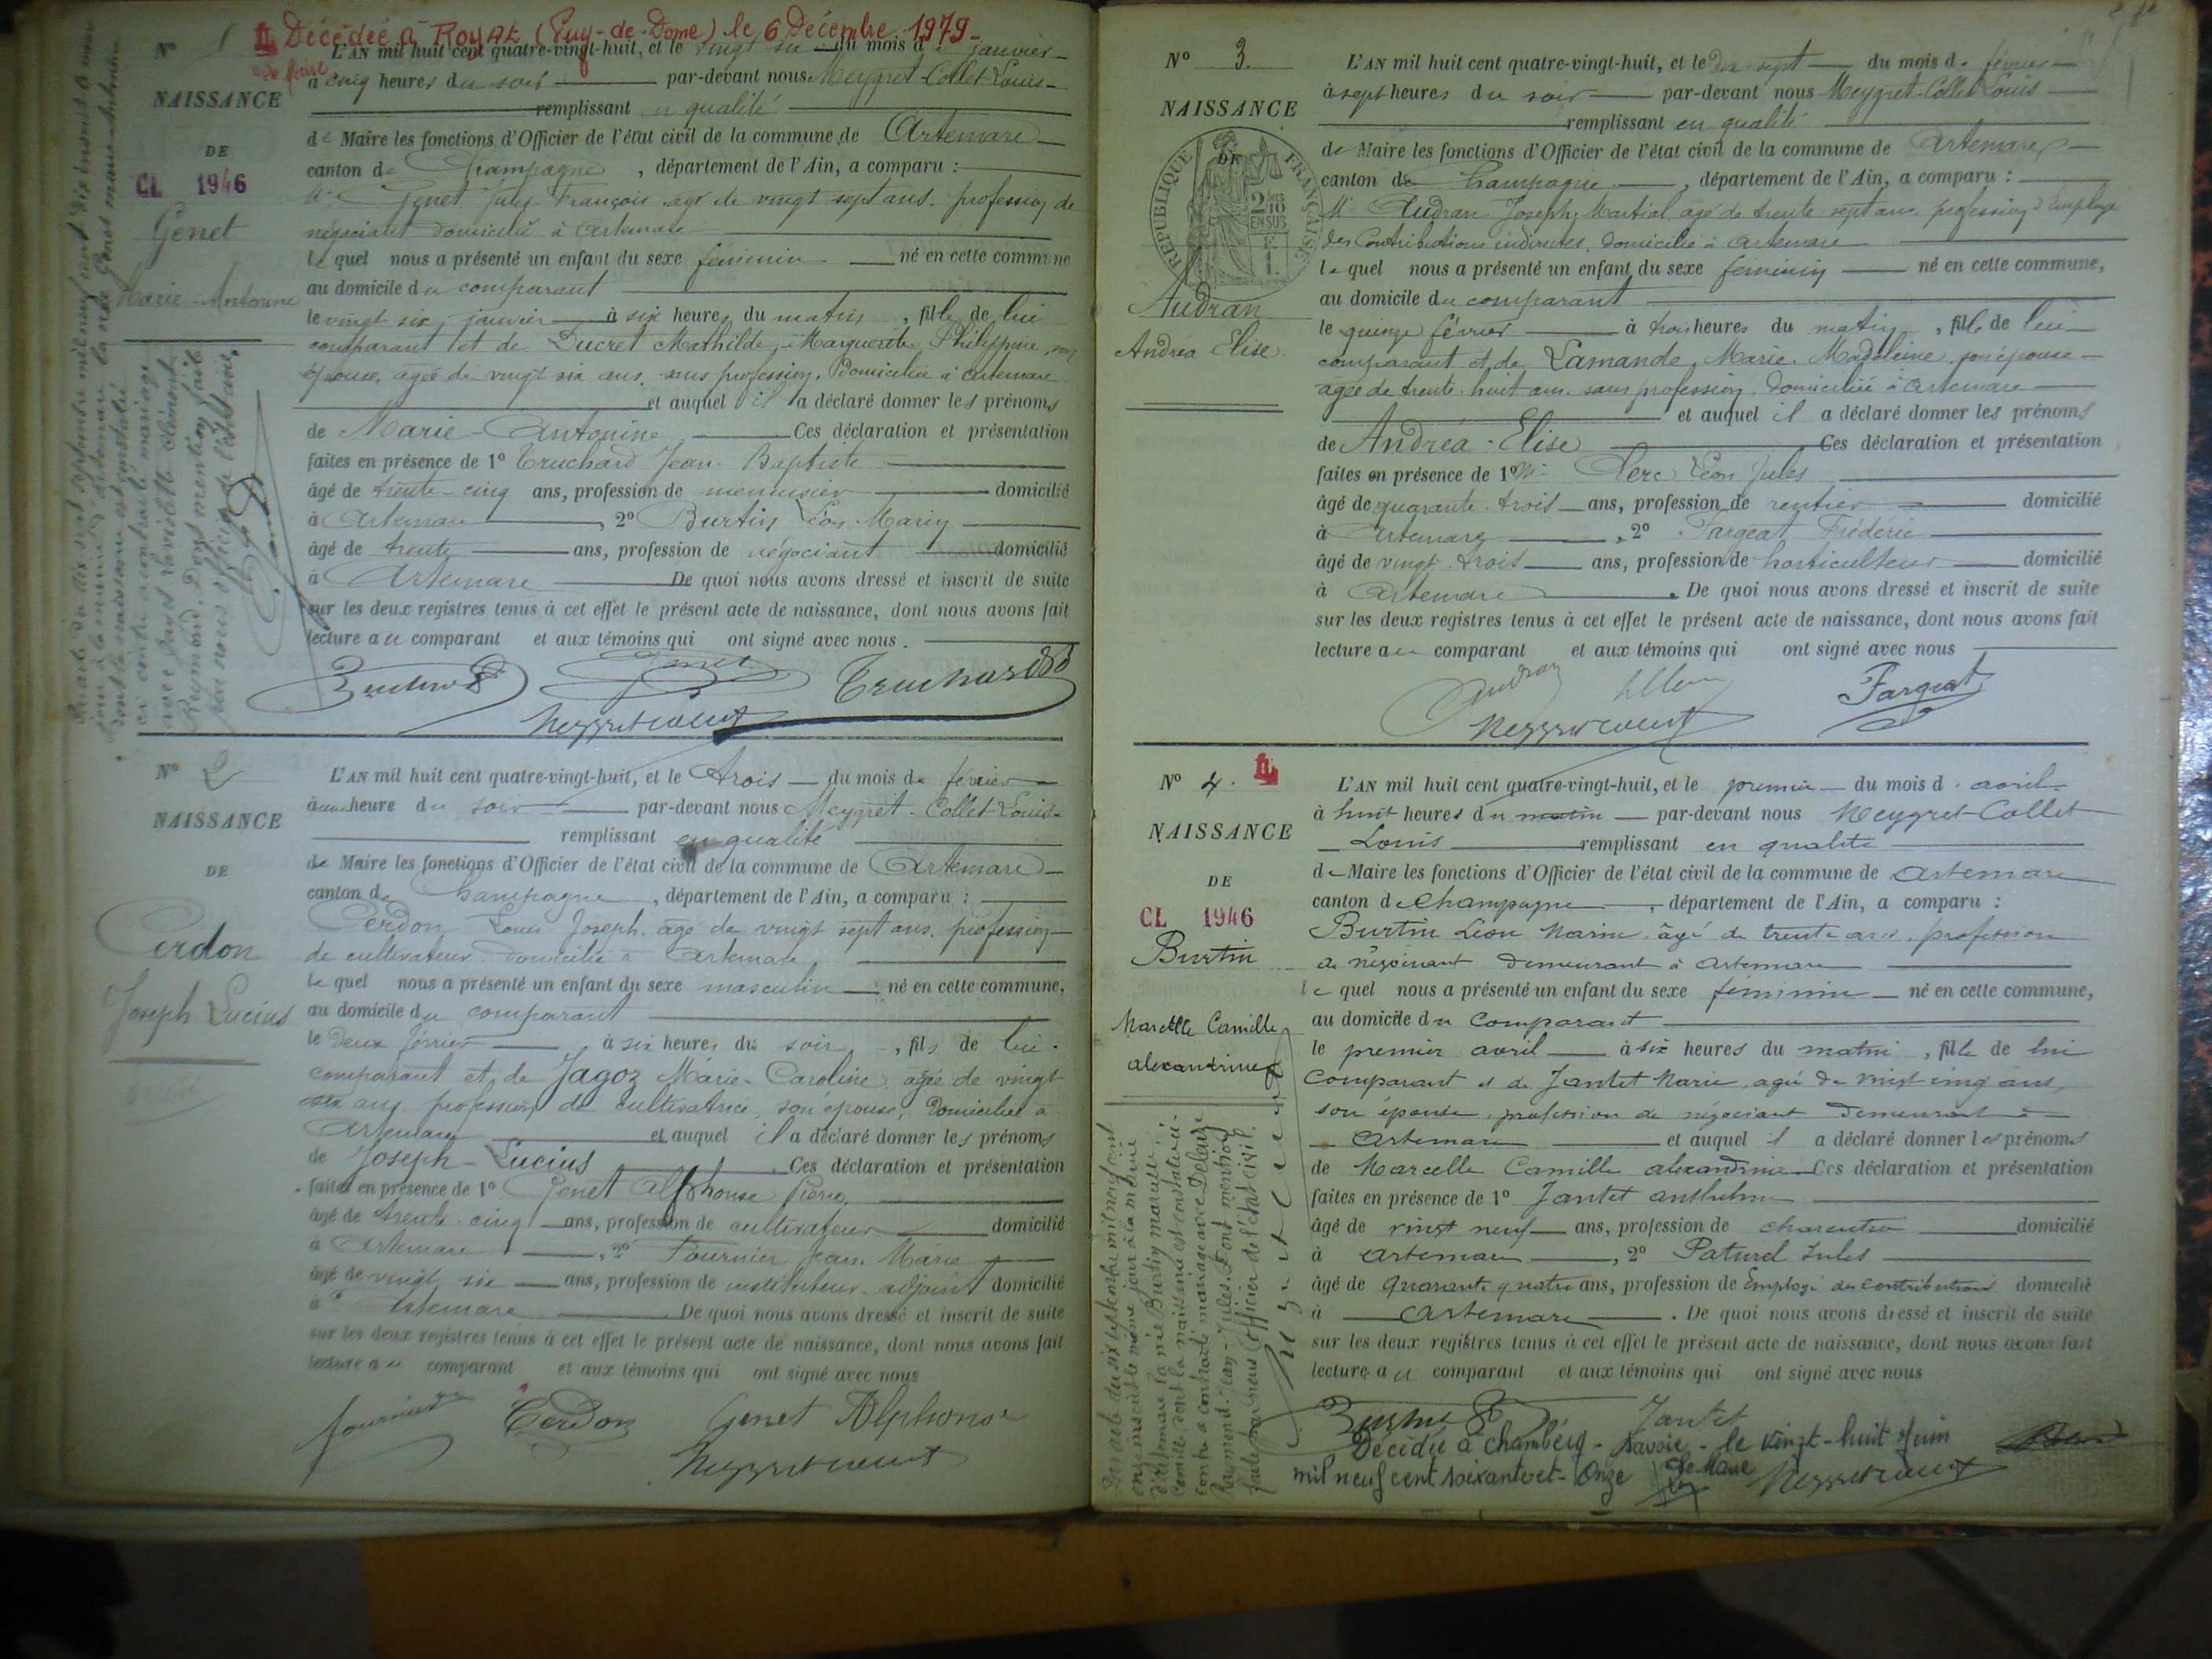 Décédée à ROYAT (Puy-de-Dome) le 6 Décembre 1979-
Le Maire
N° 1
NAISSANCE
DE
CL 1946
Genet
Marie-Antonine
L'AN mil huit cent quatre-vingt-huit, et le vingt six du mois de janvier
à cinq heures du soir par-devant nous Meygret-Collet Louis
remplissant en qualité
de Maire les fonctions d'Officier de l'état civil de la commune de Artemare
canton de Champagne, département de l'Ain, a comparu :
Mr Genet July François agé de vingt sept ans. profession de
négociant domicilié à Artemare
le quel nous a présenté un enfant du sexe féminin né en cette commune
au domicile du comparant
le vingt six janvier à six heures du matin, fille de lui
comparant et de Ducret Mathilde Marguerite Philippine, son
épouse, agée de vingt six ans, sans profession, Domiciliée à Artemare
et auquel il a déclaré donner les prénoms
de Marie-Antonine Ces déclaration et présentation
faites en présence de 1° Truchard Jean Baptiste
âgé de trente-cinq ans, profession de menuisier domicilié
à Artemare, 2° Burtin Léon Marin
âgé de trente ans, profession de négociant domicilié
à Artemare De quoi nous avons dressé et inscrit de suite
sur les deux registres tenus à cet effet le présent acte de naissance, dont nous avons fait
lecture au comparant et aux témoins qui ont signé avec nous.
Burtin Genet Truchard
Meygret Collet
N° 2
NAISSANCE
DE
Cerdon
Joseph Lucius
L'AN mil huit cent quatre-vingt-huit, et le trois du mois de février
à une heure du soir par-devant nous Meygret-Collet Louis
remplissant en qualité
de Maire les fonctions d'Officier de l'état civil de la commune de Artemare
canton de Champagne, département de l'Ain, a comparu :
Cerdon Louis Joseph. agé de vingt sept ans. profession
de cultivateur. domicilié à Artemare
le quel nous a présenté un enfant du sexe masculin né en cette commune,
au domicile du comparant
le Deux février à six heures du soir, fils de lui
comparant et de Jagoz Marie-Caroline, agée de vingt
six ans, profession de cultivatrice, son épouse, Domiciliée à
Artemare et auquel il a déclaré donner les prénoms
de Joseph-Lucius. Ces déclaration et présentation
faites en présence de 1° Genet Alphonse
âgé de trente cinq ans, profession de cultivateur domicilié
à Artemare, 2° Fournier Jean Marie
âgé de vingt six ans, profession de instituteur adjoint domicilié
à Artemare. De quoi nous avons dressé et inscrit de suite
sur les deux registres tenus à cet effet le présent acte de naissance, dont nous avons fait
lecture au comparant et aux témoins qui ont signé avec nous
Fournier Cerdon Genet Alphonse
Meygret Collet
N° 3.
NAISSANCE
DE
REPUBLIQUE FRANÇAISE
Audran
Andréa Elise.
L'AN mil huit cent quatre-vingt-huit, et le dix sept du mois de février
à sept heures du soir par-devant nous Meygret-Collet Louis
remplissant en qualité
de Maire les fonctions d'Officier de l'état civil de la commune de Artemare
canton de Champagne, département de l'Ain, a comparu :
Mr Audran Joseph Martial agé de trente sept ans. profession d'Employé
des Contributions indirectes, domicilié à Artemare
le quel nous a présenté un enfant du sexe féminin né en cette commune,
au domicile du comparant
le quinze février à trois heures du matin, fille de lui
comparant et de Lamande, Marie-Madeleine son épouse
agée de trente-huit ans. sans profession. Domiciliée à Artemare
et auquel il a déclaré donner les prénoms
de Andréa-Elise Ces déclaration et présentation
faites en présence de 1° Mr Clerc Léon Jules
âgé de quarante trois ans, profession de rentier domicilié
à Artemare, 2° Fargeat Frédéric
âgé de vingt-trois ans, profession de horticulteur domicilié
à Artemare. De quoi nous avons dressé et inscrit de suite
sur les deux registres tenus à cet effet le présent acte de naissance, dont nous avons fait
lecture au comparant et aux témoins qui ont signé avec nous
Audran Fargeat
Meygret Collet
N° 4.
NAISSANCE
DE
CL 1946
Burtin
Marcelle Camille
alexandrine
L'AN mil huit cent quatre-vingt-huit, et le premier du mois d'avril
à huit heures du matin par-devant nous Meygret-Collet
Louis remplissant en qualité
de Maire les fonctions d'Officier de l'état civil de la commune de Artemare
canton de Champagne, département de l'Ain, a comparu :
Burtin Léon Marin, âgé de trente ans, profession
de négociant demeurant à Artemare
le quel nous a présenté un enfant du sexe feminin né en cette commune,
au domicile du Comparant
le premier avril à six heures du matin, fille de lui
Comparant et de Jantet Marie, agée de vingt cinq ans,
son épouse, profession de négociant demeurant à
Artemare et auquel il a déclaré donner les prénoms
de Marcelle Camille alexandrine Ces déclaration et présentation
faites en présence de 1° Jantet anthelme
âgé de vingt neuf ans, profession de domicilié
à Artemare, 2° Paturel Jules
âgé de quarante quatre ans, profession de Employé des contributions domicilié
à Artemare. De quoi nous avons dressé et inscrit de suite
sur les deux registres tenus à cet effet le présent acte de naissance, dont nous avons fait
lecture au comparant et aux témoins qui ont signé avec nous
Burtin Jantet
Décédée à Chambéry - Savoie - le vingt-huit Juin
mil neuf cent soixante et - Onze Le Maire Meygret Collet